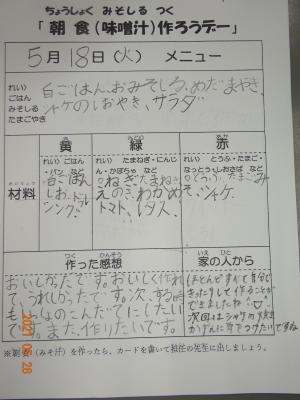 ちょうしょく みそしる つく
「 朝食(味噌汁)作ろうデー」
5月18日(火) メニュー
れい)
ごはん
みそしる
たまごやき
白ごはん、おみそしる、めだまやき、
シャケのしおやき、サラダ
き みどり あか
黄 緑 赤
ざいりょう
材料
れい) ごはん
・パン など
白ごはん
しお、ドレッ
シング
れい) たまねぎ・にんじ
ん・かぼちゃ など
ねぎ、たまねぎ
えのき、わかめ
トマト、レタス
れい) とうふ・たまご・
なっとう・しおさば など
たまご、み
そ、シャケ
つく かんそう
作った感想
いえ ひと
家の人から
おいしかったです。おいしく作れ
て、うれしかったです。次、
ものこんだてにしたい
です。また、作りたいです。
ほとんどすべて自分で
きったりして作ることが
できましたね
次回はシャケの焼き
かげんに気をつけたいですね
2021 05 28
※朝食(みそ汁)を作ったら、カードを書いて担任の先生に出しましょう。